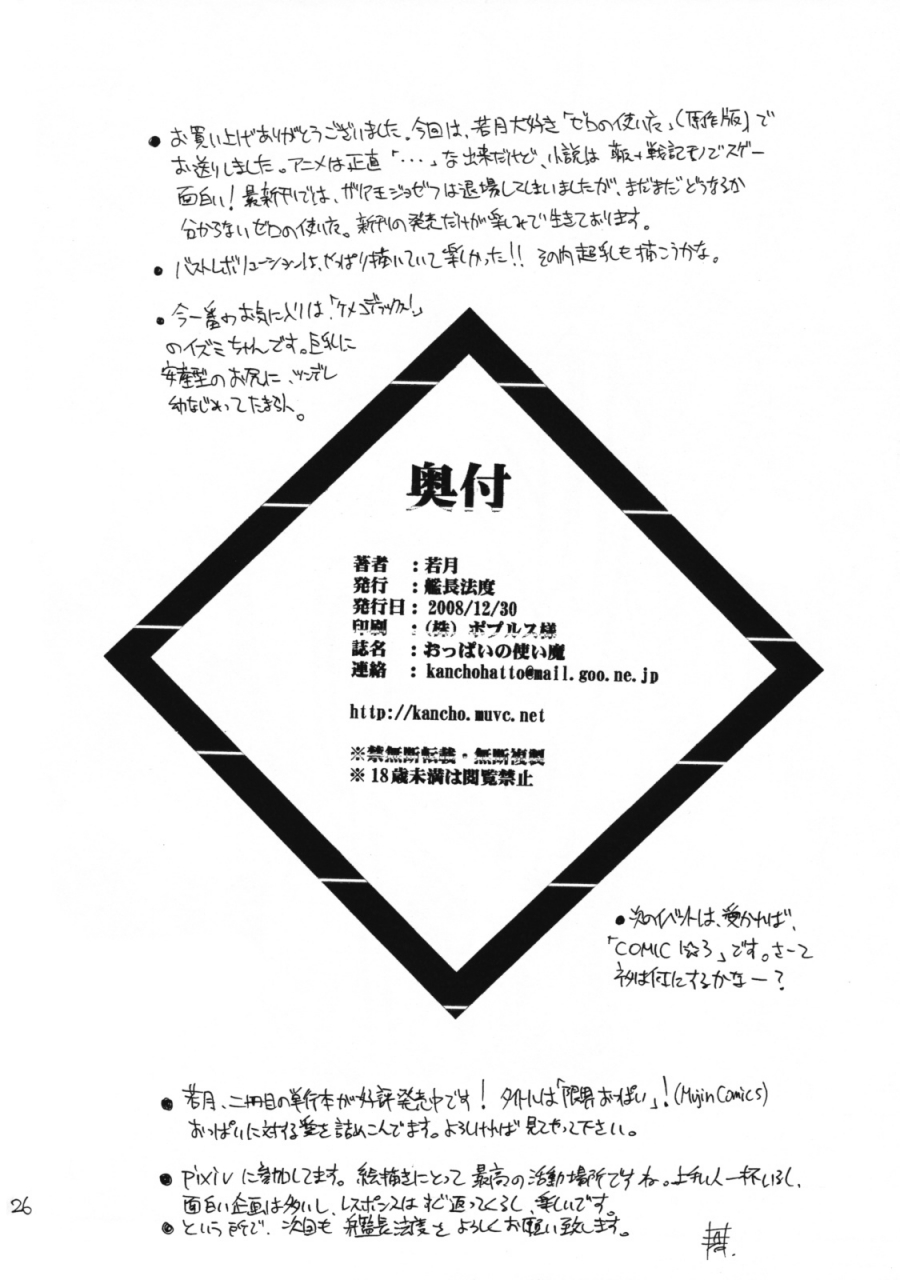 • お買い上げありがとうございました。今回は、若月大好き「ゼロの使い魔」(原作版)で
お送りしました。アニメは正直「・・・」な出来だけど、小説は 戦記モノでスゲー
面白い!最新刊では、ガリア王ジョゼフは退場してしまいましたが、まだまだどうなるか
分からないゼロの使い魔。新刊の発売だけが楽しみで生きております。
• バストレボリューションは、やっぱり描いていて楽しかった!! その内起乳も描こうかな。
• 今一番のお気に入りは「ケメコデラックス!」
のイズミちゃんです。巨乳に
安産型のお尻に、ツンデレ
幼なじみってたまらん。
奥付
著者 :若月
発行 :艦長法度
発行日: 2008/12/30
印刷 :(株)ポプルス様
誌名 :おっぱいの使い魔
連絡 : kanchohatto@mail.goo.ne.jp
http://kancho.muvc.net
※禁無断転載・無断複製
※18歳未満は閲覧禁止
• 次のイベントは、受かれば、
「COMIC1☆3」です。さーて
ネタは何にするかなー?
• 若月、二冊目の単行本が好評発売中です! タイトルは「限界おっぱい」!(Mujin Comics)
おっぱいに対する愛を詰めこんでます。よろしければ見てやって下さい。
• pixivに参加してます。絵描きにとって最高の活動場所ですね。上手い人一杯いるし、
面白い企画は多いし、レスポンスはすぐ返ってくるし、楽しいです。
• という所で、次回も 艦長法度をよろしくお願い致します。
26